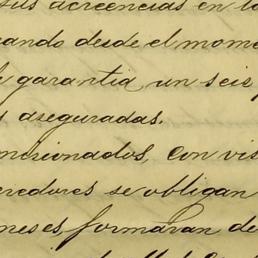 sus acreencias en la
ando desde el mome
garantia un seis p
s aseguradas.
mencionados, con vis
eedores se obligan
meses, formaran de